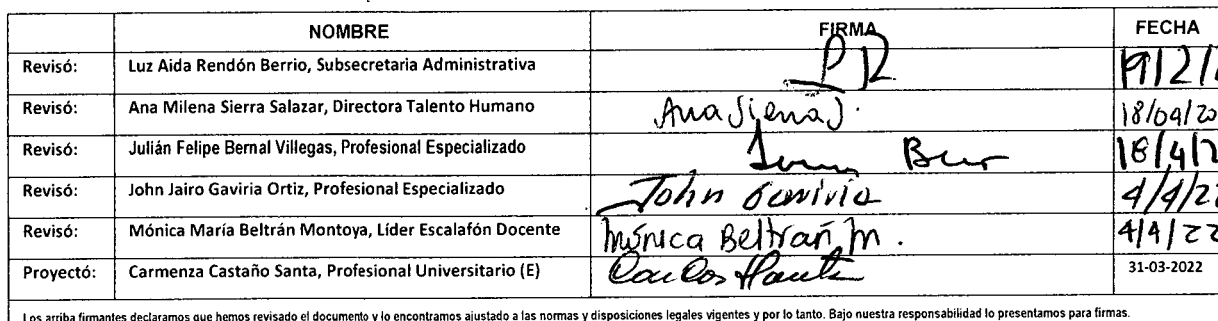 NOMBRE FIRMA FECHA
Revisó: Luz Aida Rendón Berrio, Subsecretaria Administrativa
Revisó: Ana Milena Sierra Salazar, Directora Talento Humano Ana Sierra S. 18/04/20
Revisó: Julián Felipe Bernal Villegas, Profesional Especializado 18/4/2
Revisó: John Jairo Gaviria Ortiz, Profesional Especializado John Gaviria 4/4/22
Revisó: Mónica María Beltrán Montoya, Líder Escalafón Docente Mónica Beltrán M. 4/4/22
Proyectó: Carmenza Castaño Santa, Profesional Universitario (E) 31-03-2022
Los arriba firmantes declaramos que hemos revisado el documento y lo encontramos ajustado a las normas y disposiciones legales vigentes y por lo tanto. Bajo nuestra responsabilidad lo presentamos para firmas.